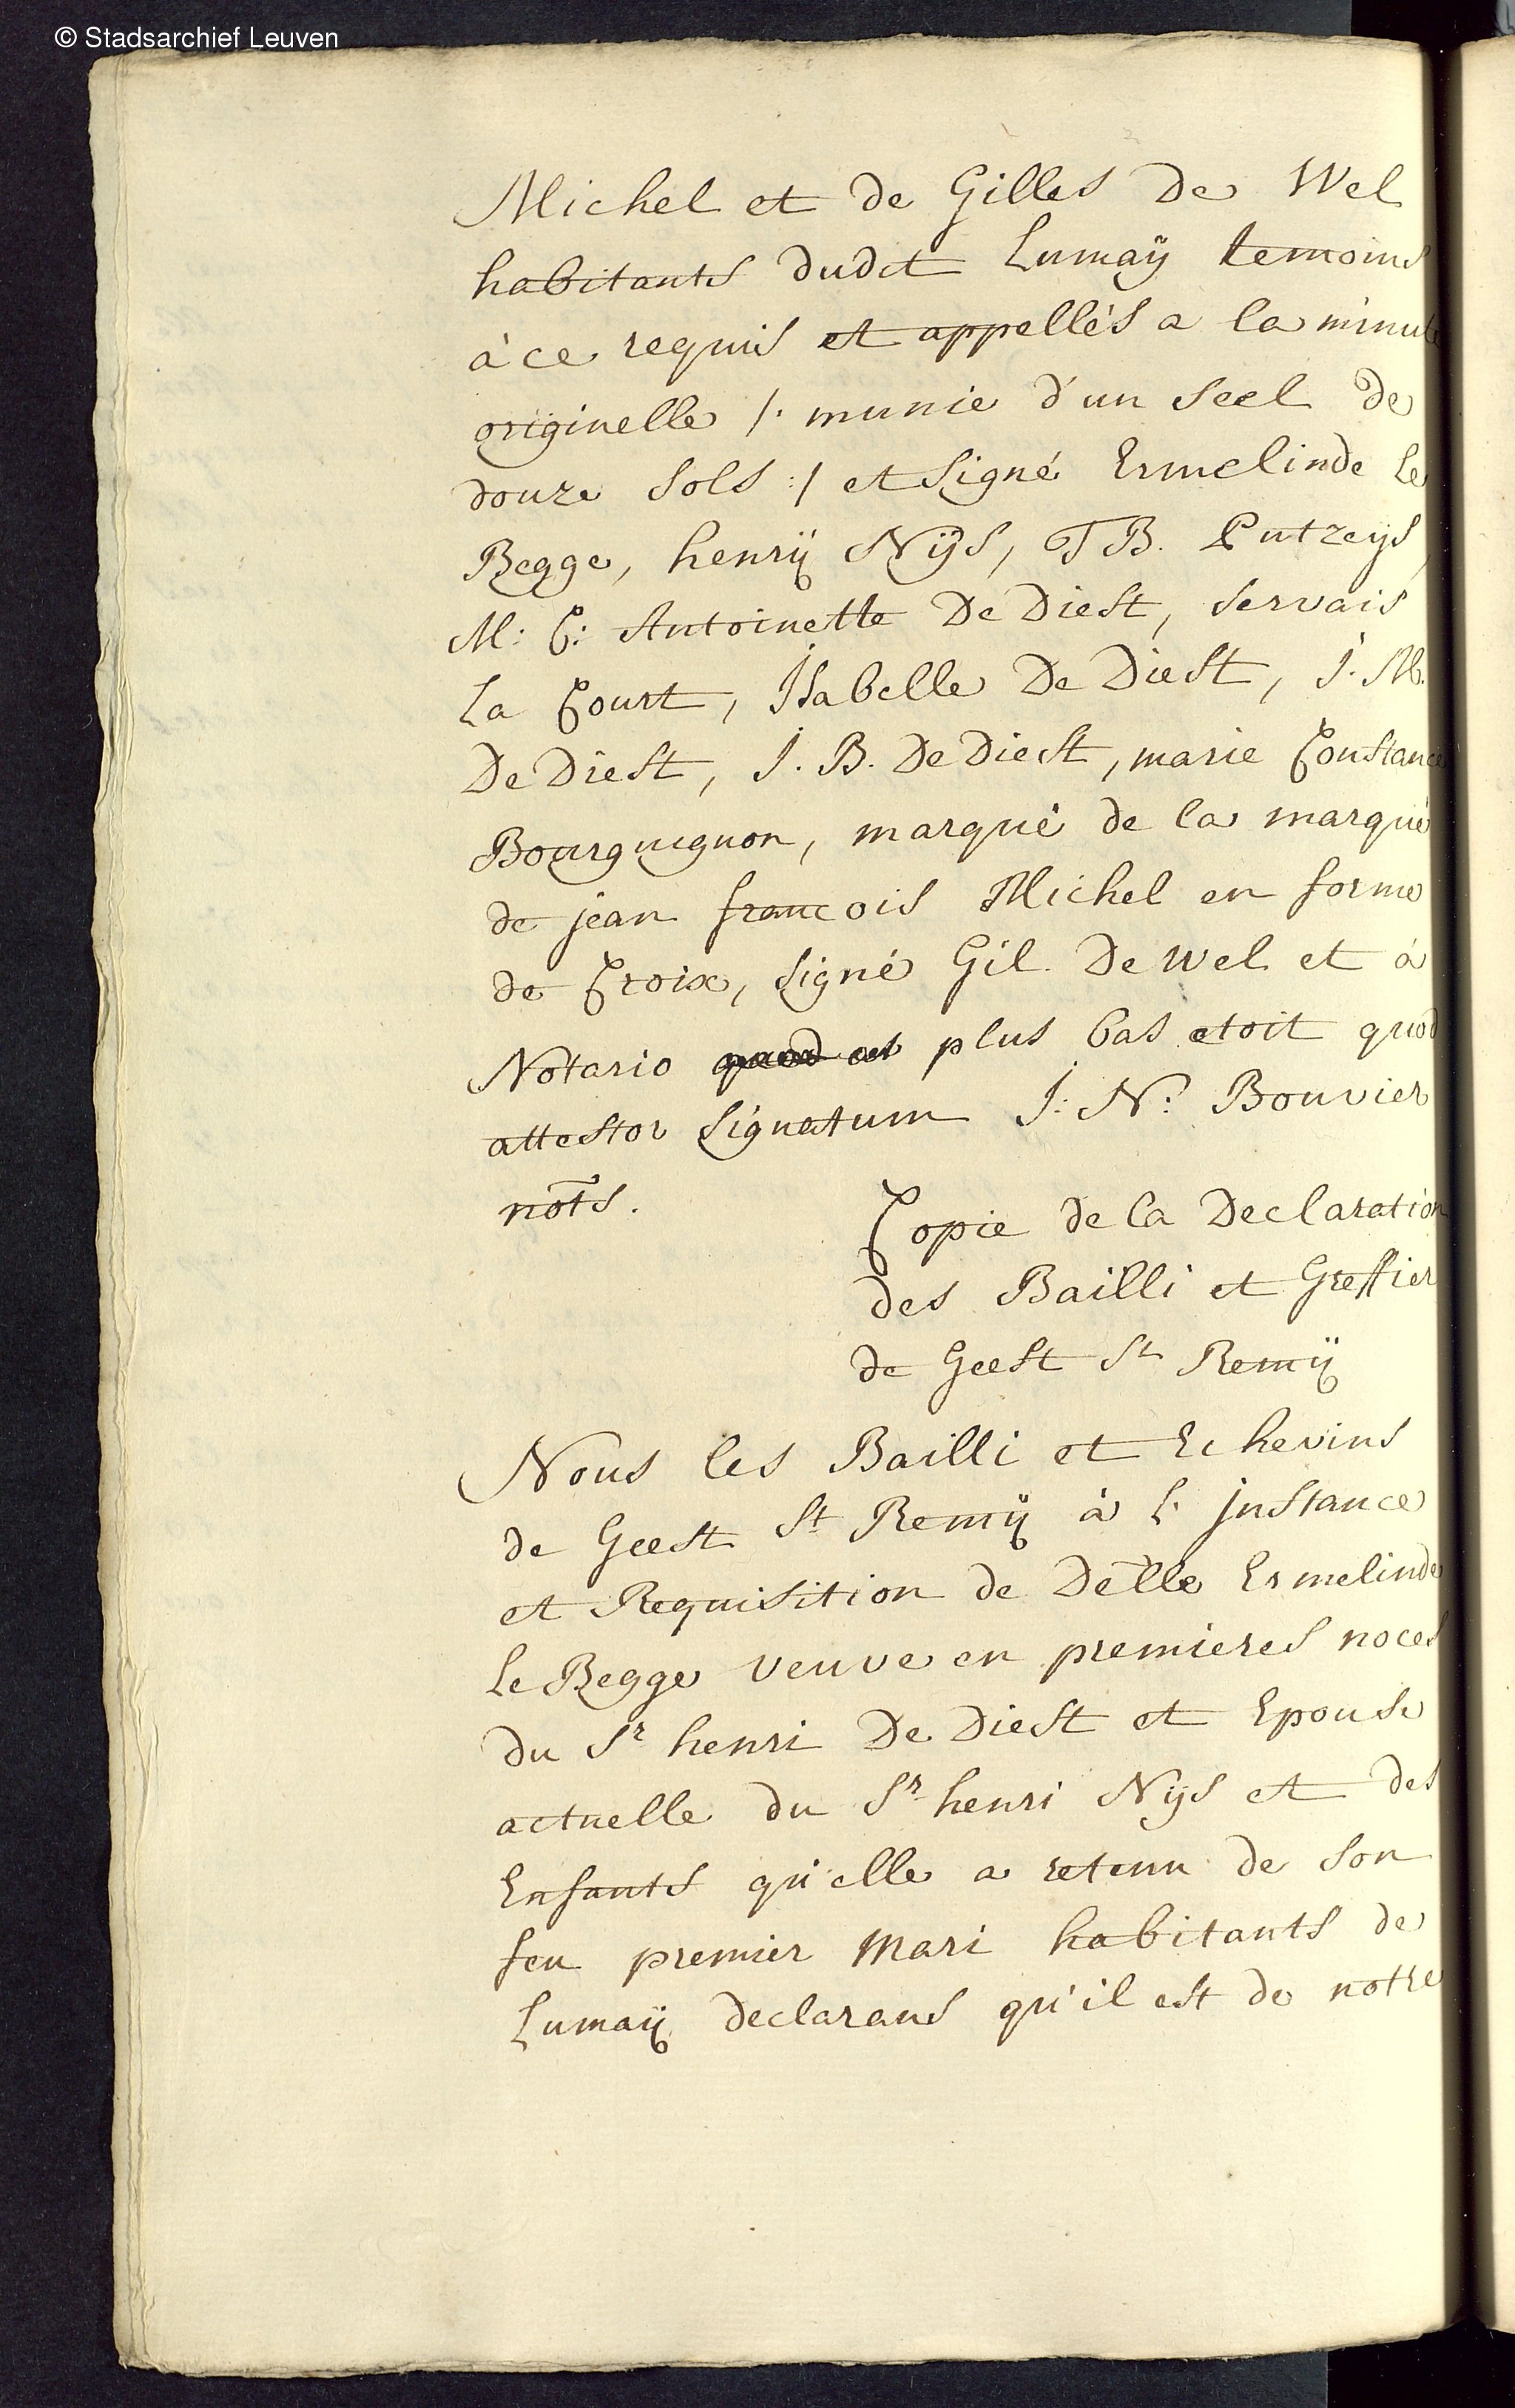 © Stadsarchief Leuven
Michel et de Gilles De Wel
habitants dudit Lumaÿ temoins
à ce requis et appellés a la minute
originelle /. munie d'un seel de
douze sols :/ et signé Ermelinde Le
Begge, henrÿ Nÿs, T B. Putzeys,
M: C: Antoinette De Diest, servais
La Court, Isabelle De Diest, J. M.
De Diest, J. B. De Diest, marie Constance
Bourguignon, marqué de la marque
de jean francois Michel en forme
de Croix, signé Gil. De Wel et à
Notario plus bas etoit quod
attestor signatum J: N: Bouvier
nots.
Copie de la Declaration
des Bailli et Greffier
de Geest St Remÿ
Nous les Bailli et Echevins
de Geest St Remÿ à l'instance
et Requisition de Delle Ermelinde
Le Begge veuve en premieres noces
du Sr henri De Diest et Epouse
actuelle du Sr henri Nÿs et des
Enfants qu'elle a retenu de son
feu premier Mari habitants de
Lumaÿ declarans qu'il est de notre